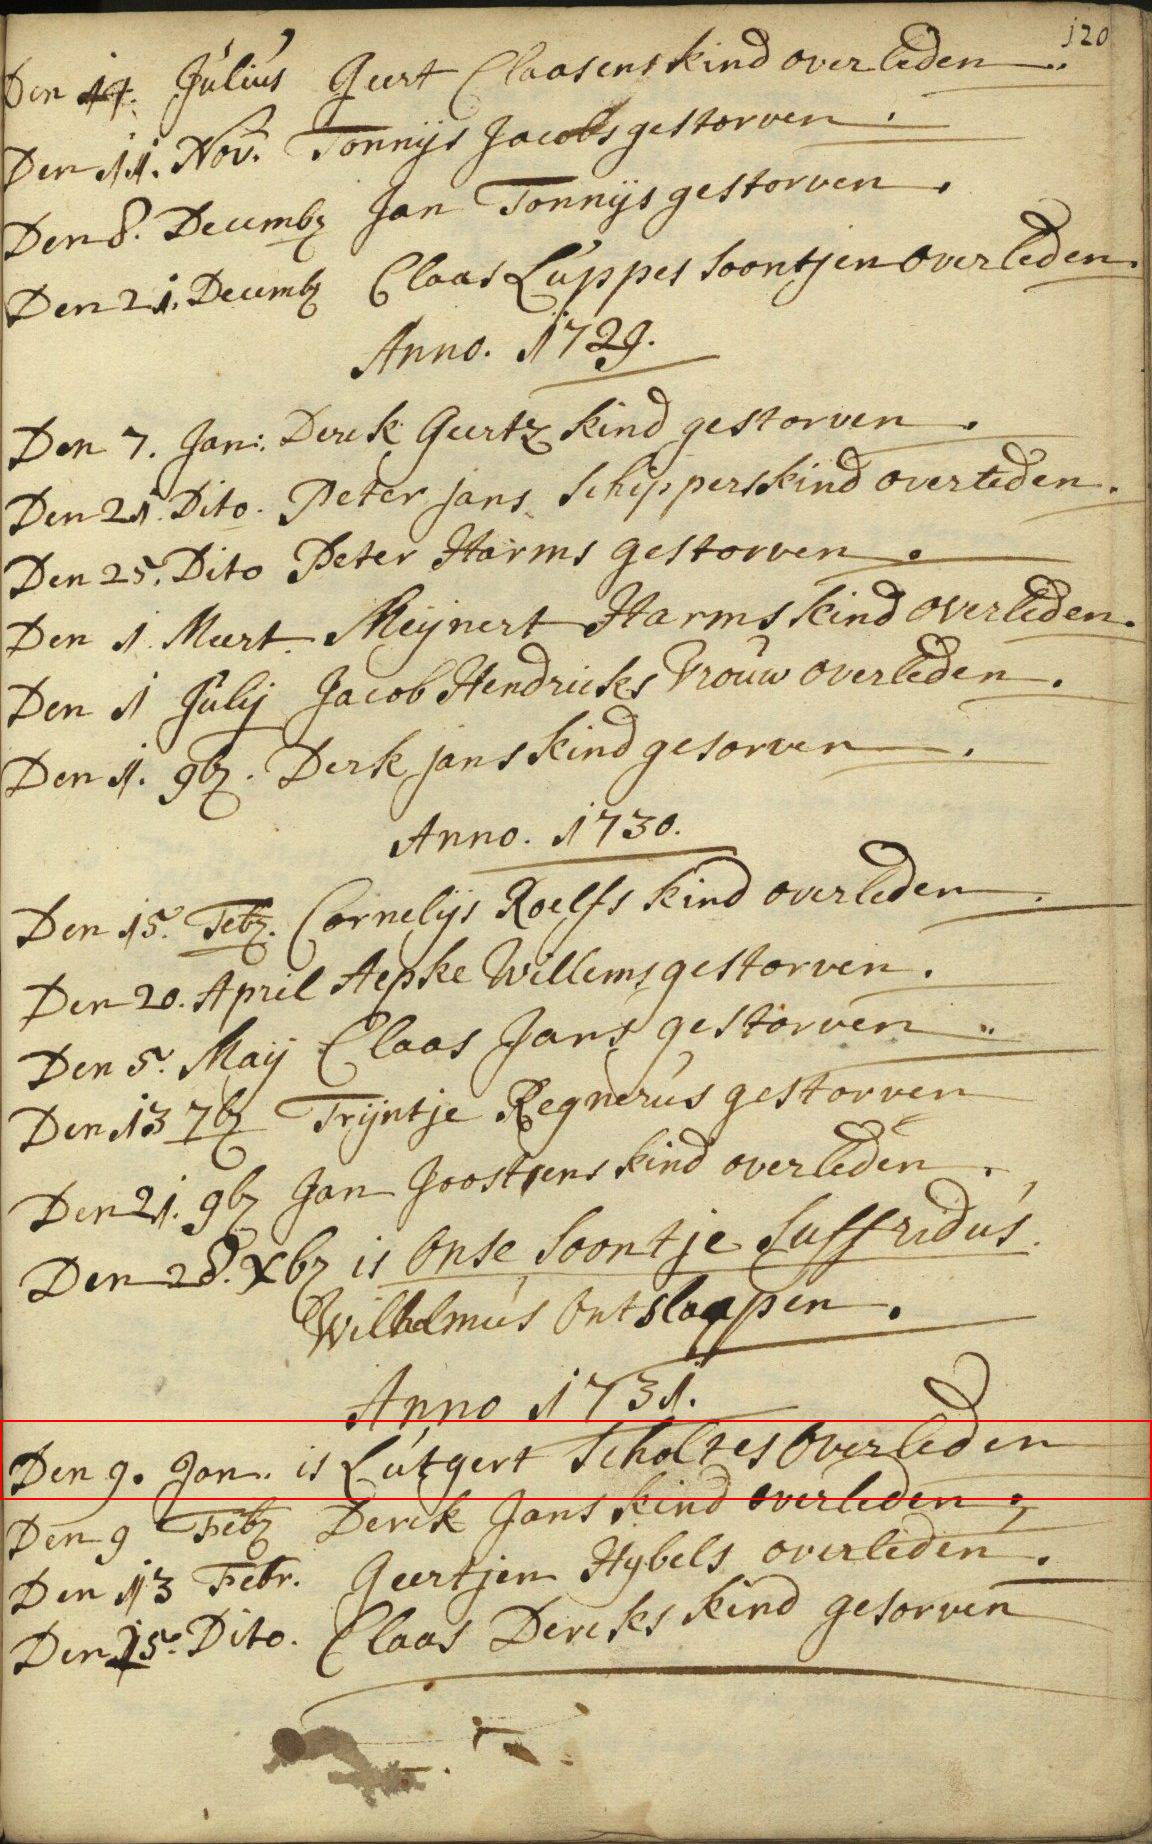 120
Den 14. Julius Geert Claasens kind overleden
Den 11. Nov. Tonnijs Jacobs gestorven.
Den 8. Decembr Jan Tonnijs gestorven.
Den 21. Decembr Claas Luppes Soontjen overleden.
Anno. 1729.
Den 7. Jan: Derck Geertz kind gestorven.
Den 21. Dito. Peter jans Schippers kind overleden.
Den 25. Dito Peter Harms gestorven.
Den 1. Meert. Meijnert Harms kind overleden.
Den 1 Julij Jacob Hendricks Vrouw overleden.
Den 11. 9br. Derk jans kind gesorven.
Anno. 1730.
Den 15. Febr. Cornelijs Roelfs kind overleden.
Den 20. April Aepke Willems gestorven.
Den 5. Maij Claas Jans gestorven
Den 13 7br Trijntje Regnerus gestorven
Den 21. 9br Jan Joostens kind overleden.
Den 28. Xbr is Onse Soontje Suffridus.
Wilhelmus Ontslaapen.
Anno 1731.
Den 9. Jan. is Lutgert Scholtes Overleden
Den 9 Febr Derck Jans kind overleden;
Den 13 Febr. Geertjen Hybels overleden.
Den 15. Dito. Claas Dercks kind gesorven